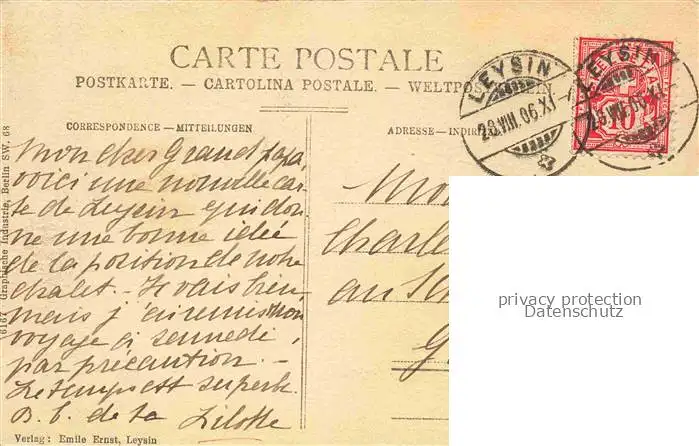 CARTE POSTALE
POSTKARTE. — CARTOLINA POSTALE. — WELTPOSTVEREIN
CORRESPONDENCE – MITTEILUNGEN
ADRESSE–INDIRI
LEYSIN
23.VIII.06.XI
LEYSIN
23.VIII.06.XI
10
Mon cher Grand papa,
voici une nouvelle car
te de Leysin qui don
ne une bonne idée
de la position de notre
chalet. – Je vais bien,
mais j'ai remis mon
voyage à samedi,
par précaution. –
Le temps est superbe.
B. b. de ta Lilotte
Charle
au
G
6167 Graphische Industrie, Berlin SW. 68
Verlag: Emile Ernst, Leysin
privacy protection
Datenschutz